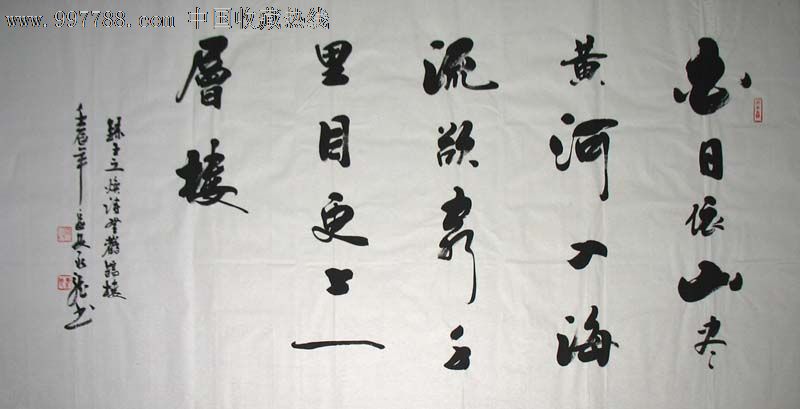 www.997788.com 中国收藏热线
白日依山尽
黄河入海
流欲窮千
里目更上一
層楼
録王之焕诗登鹳鹊楼
壬辰年